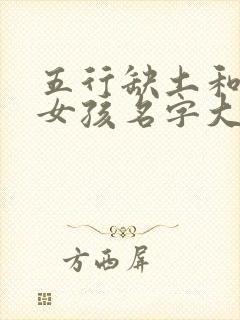 五行缺土和
女孩名字大
方西屏